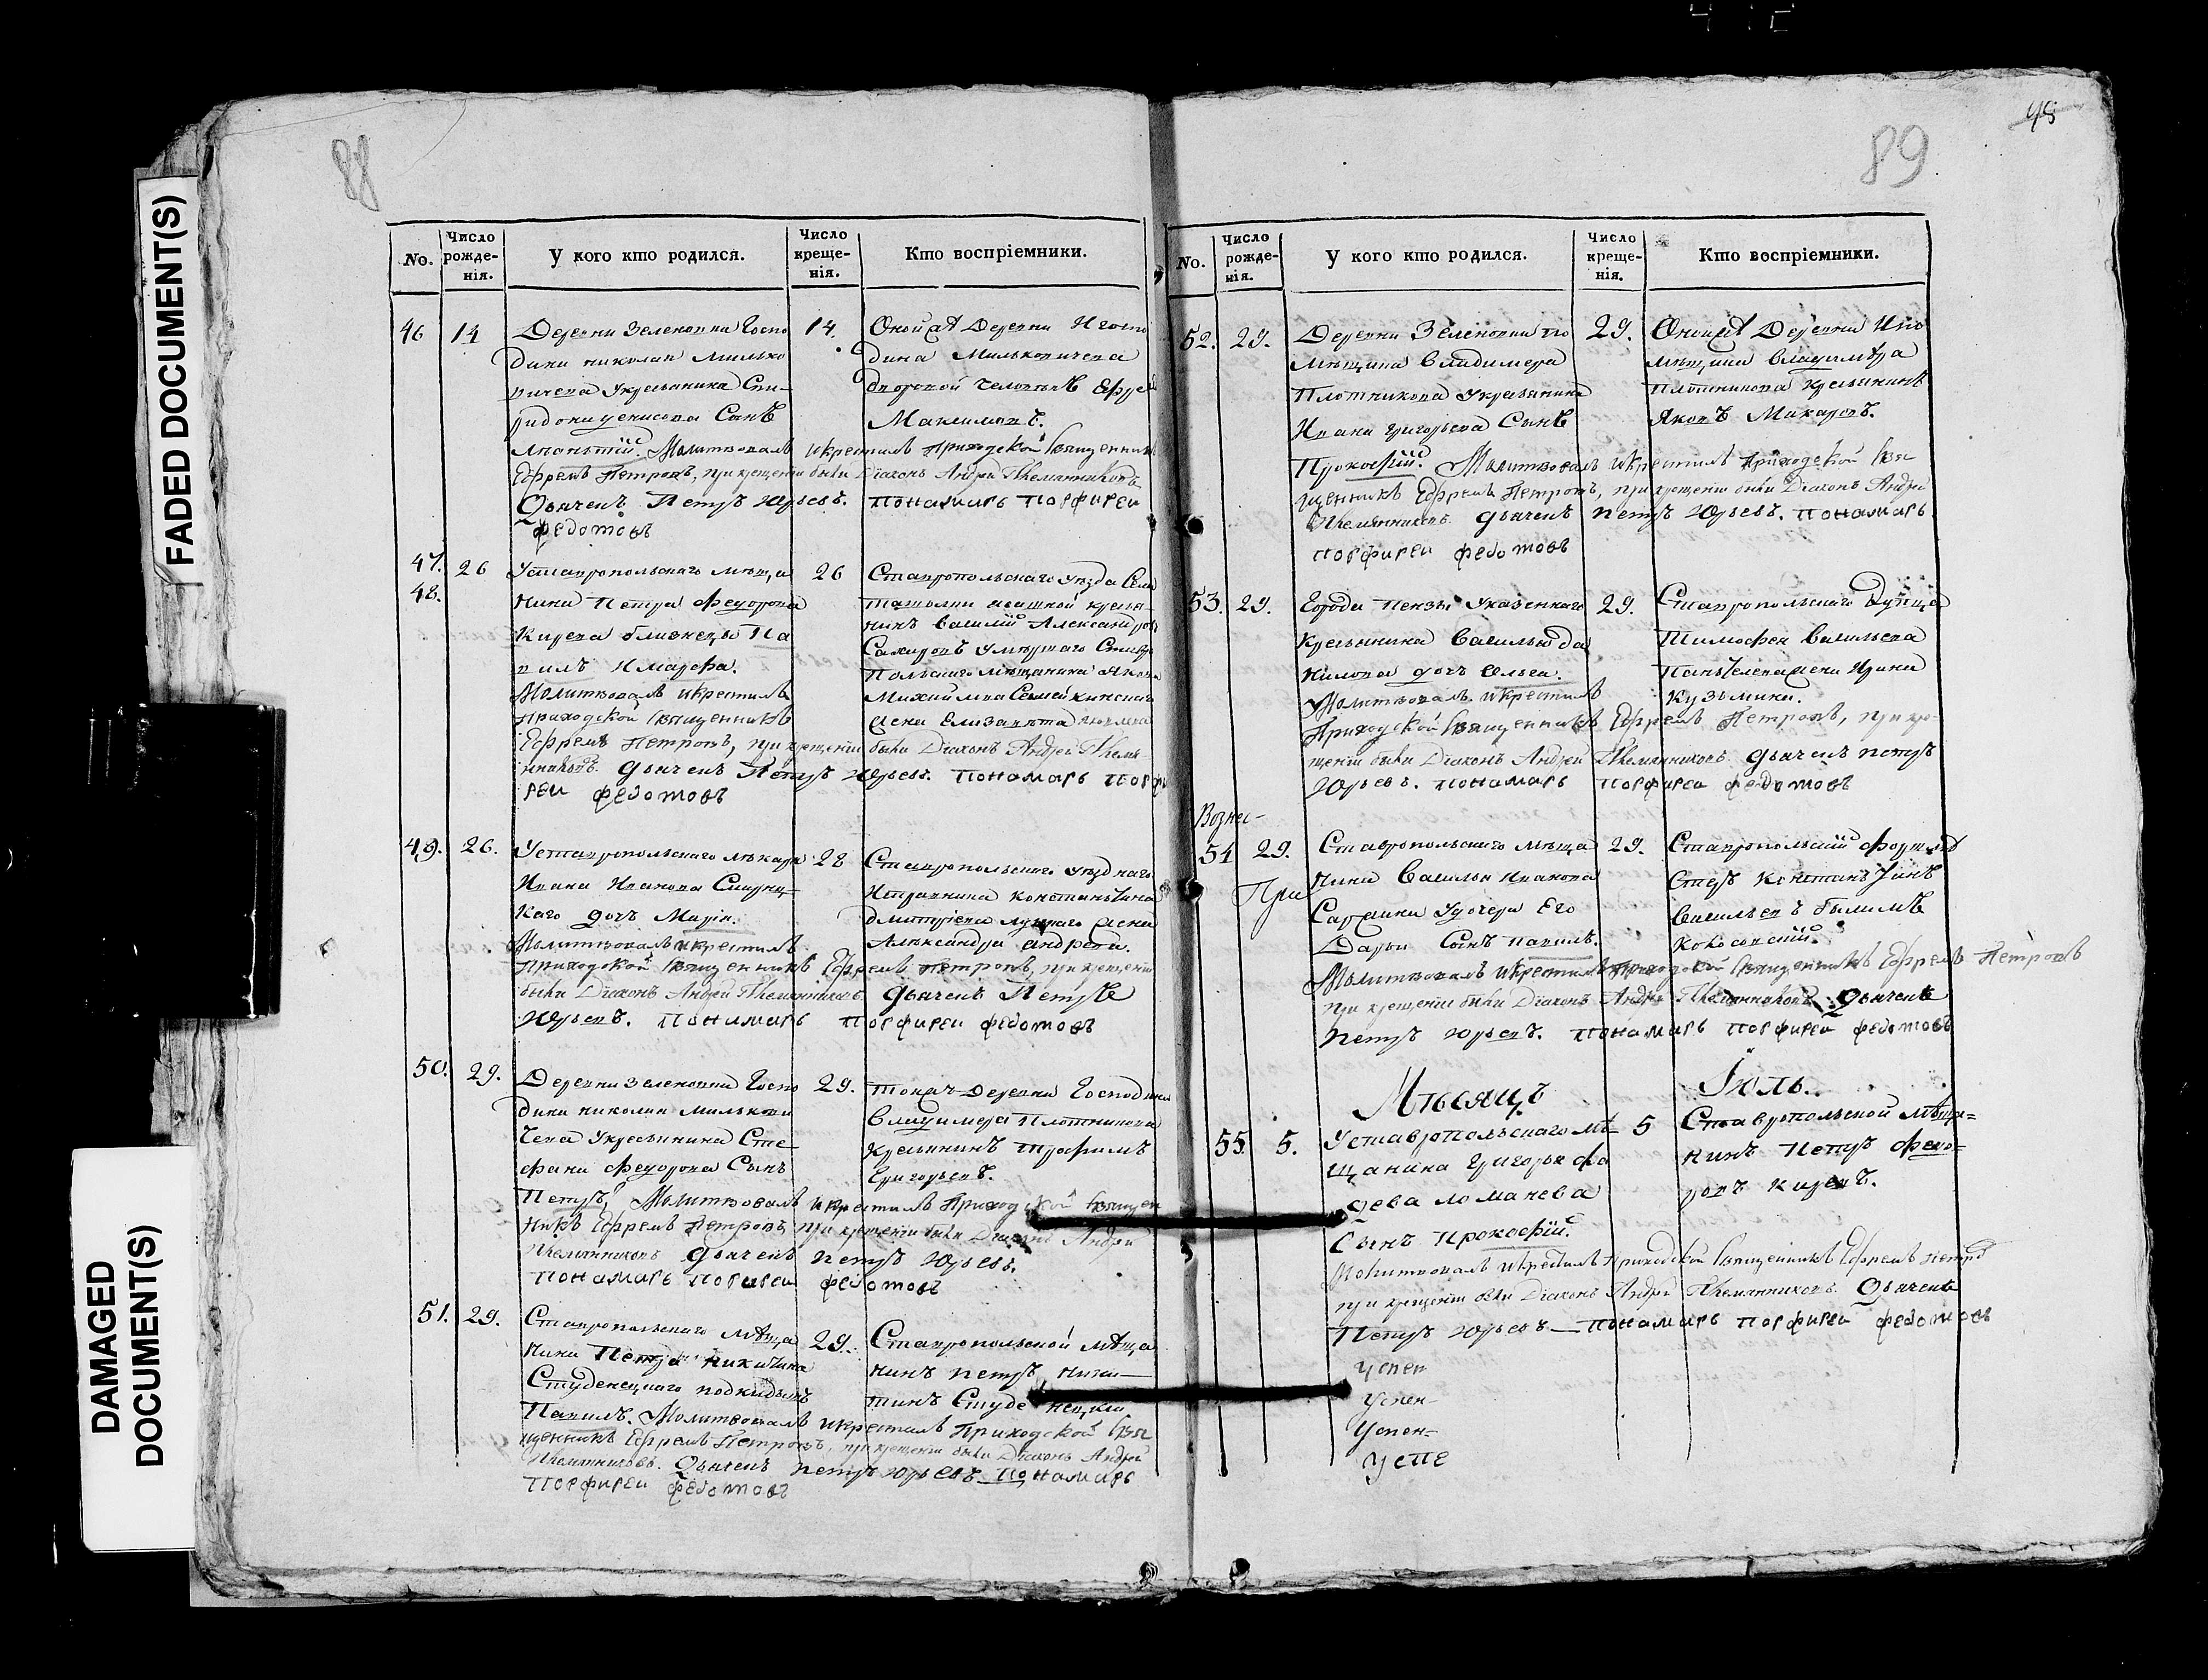 88
No.
Число рожде-нія.
У кого кто родился.
Число креще-нія.
Кто воспріемники.
46
14
Деревни Зеленовки Госпо
дина николая Милько
вичева Укрестьянина Спи-
ридона денисова Сынъ
Молитвовалъ икрестилъ Приходской Священникъ
Ефремъ Петровъ, при крещении были Діаконъ Андрей Племянниковъ
Дьячекъ Петръ Юрьевъ. Пономарь Порфиреи
федотовъ
14.
Оной же Деревни И госпо
дина Мильковичева
дворовой человекъ Ефре
Максимовъ.
47.
48.
26
Уставропольскаго мѣща
нина Петра Федорова
Кирева близнецы Па
вилъ И марфа.
Молитвовалъ икрестилъ
Приходской Священникъ
Ефремъ Петровъ, при крещении были Діаконъ Андрей Племя
нниковъ. дьячекъ Петръ Юрьевъ. Пономарь Порфи
реи федотовъ
26
Ставропольскаго уѣзда Села
Ташолки крестья-
нинъ василій Александров
Сахаровъ Умершаго Ставро
Польскаго мѣщанина Якова
Михайлова
жена Елизавета
49.
26.
Уставропольскаго лѣкаря
Ивана Иванова Смирни-
каго дочь Марія.
Молитвовалъ икрестилъ
Приходской Священникъ Ефремъ Петровъ, при крещении
были Діаконъ Андрей Племянниковъ. дьячекъ Петръ
Юрьевъ. Пономарь Порфиреи федотовъ
28
Ставропольскаго уѣзднаго
Исправника константина
дмитріева жена
Александра андреева.
50.
29.
Деревни Зеленовки Госпо
дина николая Милькови
чева Укрестьянина Сте
фана федорова Сынъ
Петръ, Молитвовалъ икрестилъ Приходской Священ
никъ Ефремъ Петровъ, при крещении были Діаконъ Андрей
Племянниковъ дьячекъ петръ Юрьевъ.
Пономарь Порфиреи федотовъ
29.
тояж Деревни Господина
владимера Плотникова
крестьянинъ трофимъ
Григорьевъ.
51.
29.
Ставропольскаго Мѣща
нина Петра никитина
Студенецкаго подкидышъ
Павилъ. Молитвовалъ икрестилъ Приходской Свя
щенникъ Ефремъ Петровъ, при крещении были Діаконъ Андрей
Племянниковъ. Дьячекъ петръ юрьевъ. Пономарь
Порфиреи федотовъ
29.
Ставропольской мѣща
нинъ петръ ники-
тинъ Студенецкій
89
No.
Число рожде-нія.
У кого кто родился.
Число креще-нія.
Кто воспріемники.
52.
29.
Деревни Зеленовки по
мѣщика владимера
Плотникова Укрестьянина
Ивана григорьева Сынъ
Прокофій. Молитвовалъ икрестилъ Приходской Свя
щенникъ Ефремъ Петровъ, при крещении были Діаконъ Андрей
Племянниковъ. дьячекъ петръ Юрьевъ. пономарь
порфиреи федотовъ
29.
Оной же Деревни И по
мѣщика владимера
Плотникова крестьянинъ
Яковъ Макаровъ.
53.
29.
Города Пензы Указеннаго
крестьянина Василья да
нилова дочь Ольга.
Молитвовалъ икрестилъ
Приходской Священникъ Ефремъ Петровъ, при кре-
щении были Діаконъ Андрей Племянниковъ дьячекъ петръ
Юрьевъ. пономарь порфиреи федотовъ
29.
Ставропольскаго Купца
Тимофея васильева
Пантелева жена Ирина
Кузьмина.
Вознес-
При
54
29.
Ставропольскаго мѣща
нина Василья Иванова
Удочери Его
Дарьи Сынъ павилъ.
Молитвовалъ икрестилъ Приходской Священникъ Ефремъ Петровъ
при крещении были Діаконъ Андрей Племянниковъ. дьячекъ
Петръ юрьевъ. пономарь порфиреи федотовъ
29.
Ставропольскій
Константинъ
васильевъ
Мѣсяцъ Іюль.
55.
5.
Уставропольскаго мѣ
щанина Григорья фа
дева ломакева
Сынъ Прокофій.
Молитвовалъ икрестилъ Приходской Священникъ Ефремъ Петровъ
при крещении были Діаконъ Андрей Племянниковъ. Дьячекъ
Петръ юрьевъ — пономарь порфиреи федотовъ
5
Ставропольской мѣща-
нинъ Петръ Федо-
ровъ киревъ.
Успен
Успен-
Успен-
Успе
FADED DOCUMENT(S)
DAMAGED DOCUMENT(S)